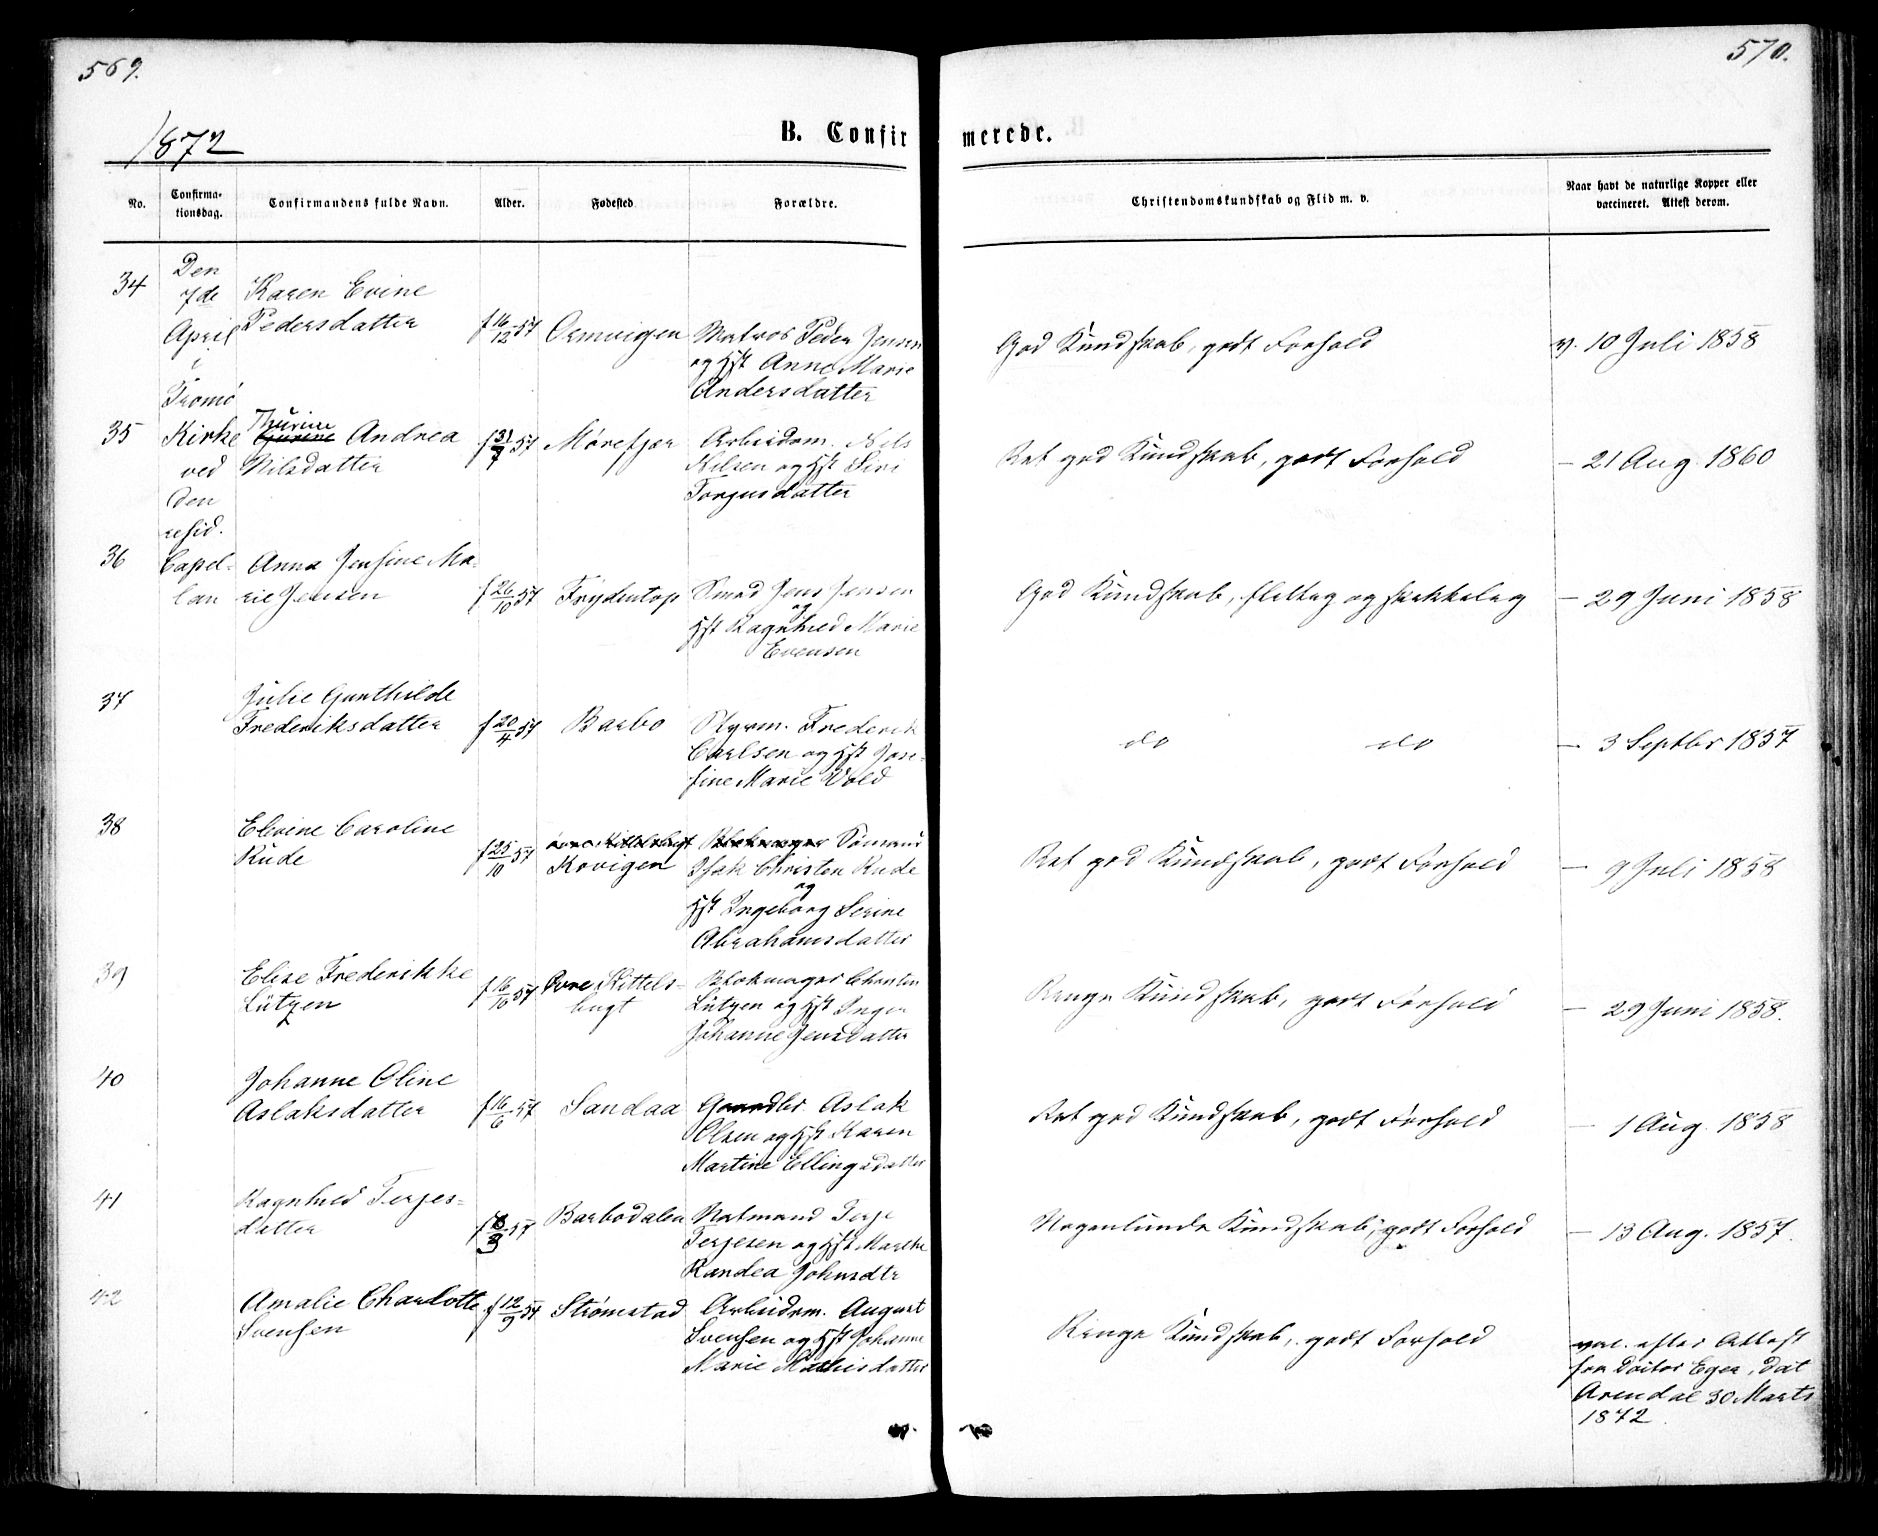 569.
570.
1872
B. Confirmerede.
No.
Confirmationsdag.
Confirmandens fulde Navn.
Alder.
Fødested
Forældre.
Christendomskundskab og Flid m. v.
Naar havt de naturlige Kopper eller vaccineret. Attest derom.
Den
7de
April
i
Tromø
Kirke
ved
den
resid.
Capel-
lan
34
Karen Evine
Pedersdatter
f 16/12 57
Ormvigen
Matros Peder Jensen
og Hst Anne Marie
Andersdatter
God Kundskab, godt Forhold
v. 10 Juli 1858
35
Thurine
Andrea
Nilsdatter
f 31/7 57
Mørefjær
Arbeidsm. Nils
Nilsen og Hst Siri
Torgusdatter
Ret god Kundskab, godt Forhold
— 21 Aug. 1860
36
Anna Jensine Ma-
rie Jensen
f 26/10 57
Frydentop
Smed Jens Jensen
og
Hst Ragnhild Marie
Evensen
God Kundskab, flittig og skikkelig
— 29 Juni 1858
37
Julie Gunthilde
Frederiksdatter
f 20/4 57
Barbo
Styrm. Frederik
Carlsen og Hst Jose-
fine Marie Vold
do do
— 3 Septbr 1857
38
Elvine Caroline
Rude
f 25/10 57
Kovigen
Sømand
Isak Christen Rude
og
Hst Ingeborg Serine
Abrahamsdatter
Ret god Kundskab, godt Forhold
— 9 Juli 1858
39
Elise Frederikke
Lützen
f 16/10 57
Øvre Kittels-
bugt
Blokmager Christen
Lützen og Hst Inger
Johanne Jensdatter
Ringe Kundskab, godt Forhold
— 29 Juni 1858.
40
Johanne Oline
Aslaksdatter
f 16/6 57
Sandaa
Gaardbr. Aslak
Olsen og Hst Karen
Martine Ellingsdatter
Ret god Kundskab, godt Forhold
— 1 Aug. 1858
41
Ragnhild Terjes-
datter
f 8/3 57
Barbodalen
Natmand Terje
Terjesen og Hst Marthe
Randea Johnsdtr
Nogenlunde Kundskab, godt Forhold
— 13 Aug. 1857.
42
Amalie Charlotte
Svensen
f 12/9 57
Strømstad
Arbeidsm. August
Svensen og Hst Johanne
Marie Mathisdatter
Ringe Kundskab, godt Forhold
vac. efter Attest
fra Doctor Eger, dat
Arendal 30 Marts
1872.